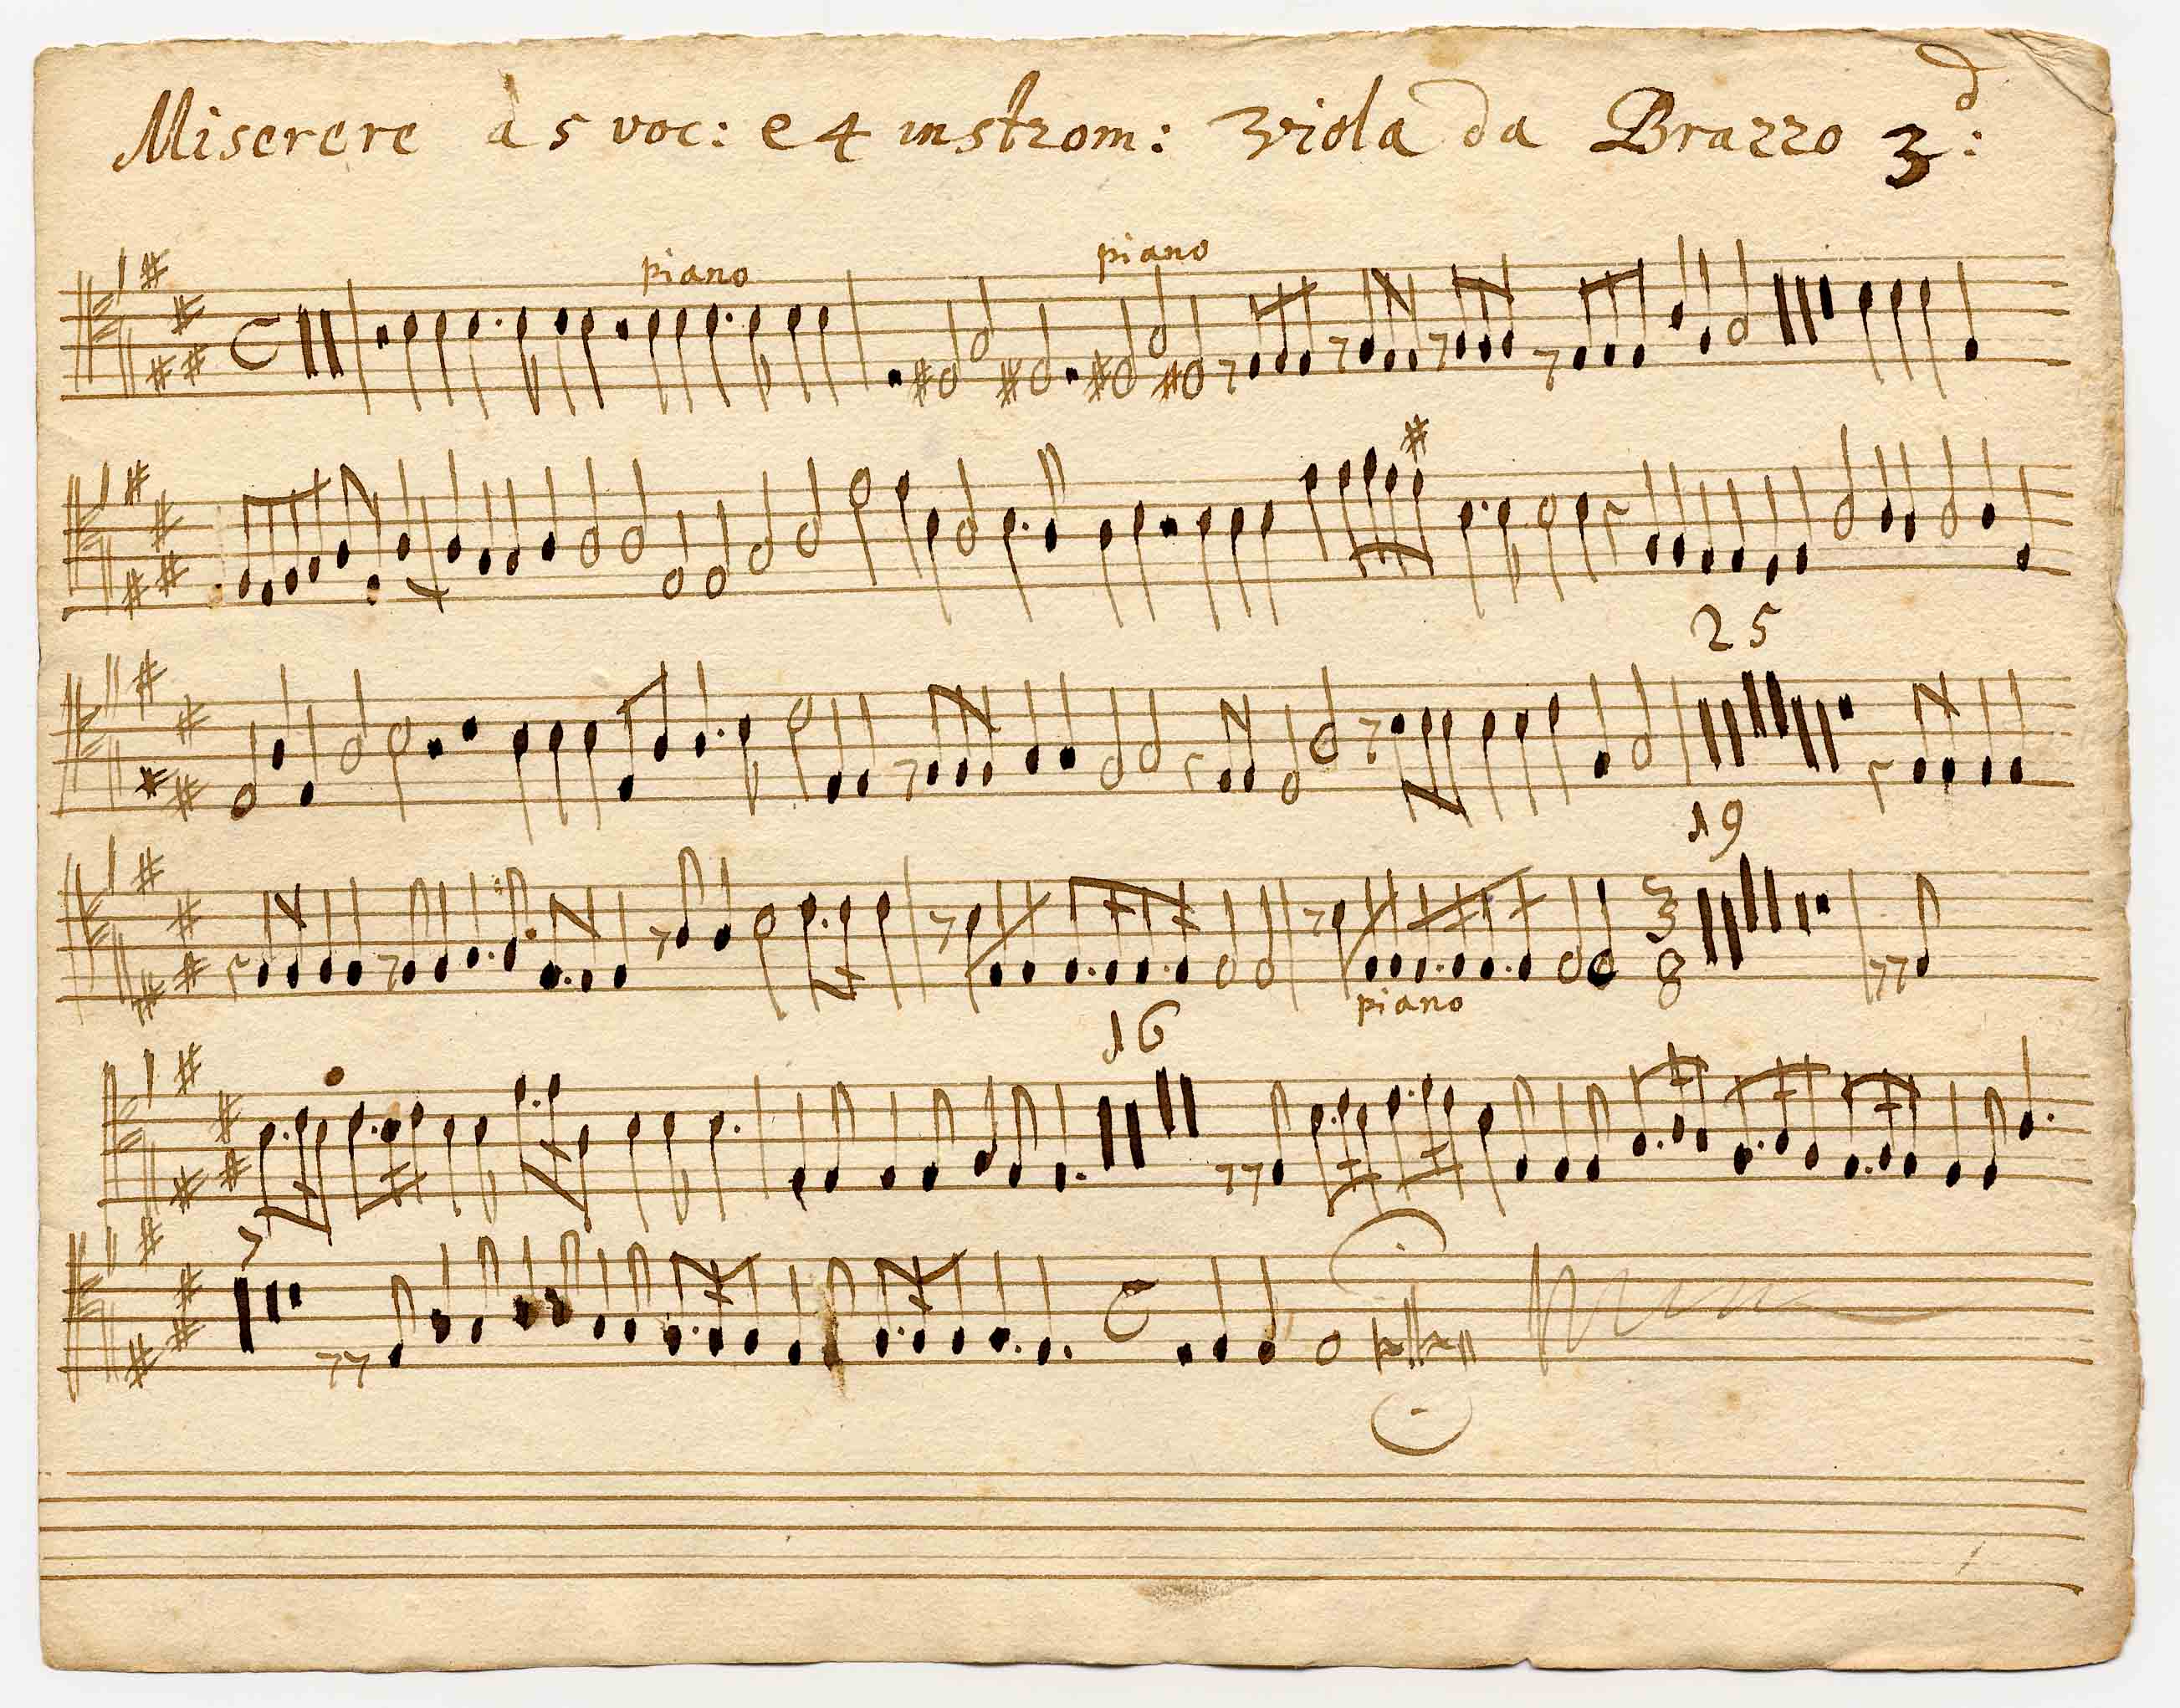 Miserere à 5 voc: e 4 instrom: Viola da Brazzo 3d:
piano piano
25
19
3 8
piano
16
7